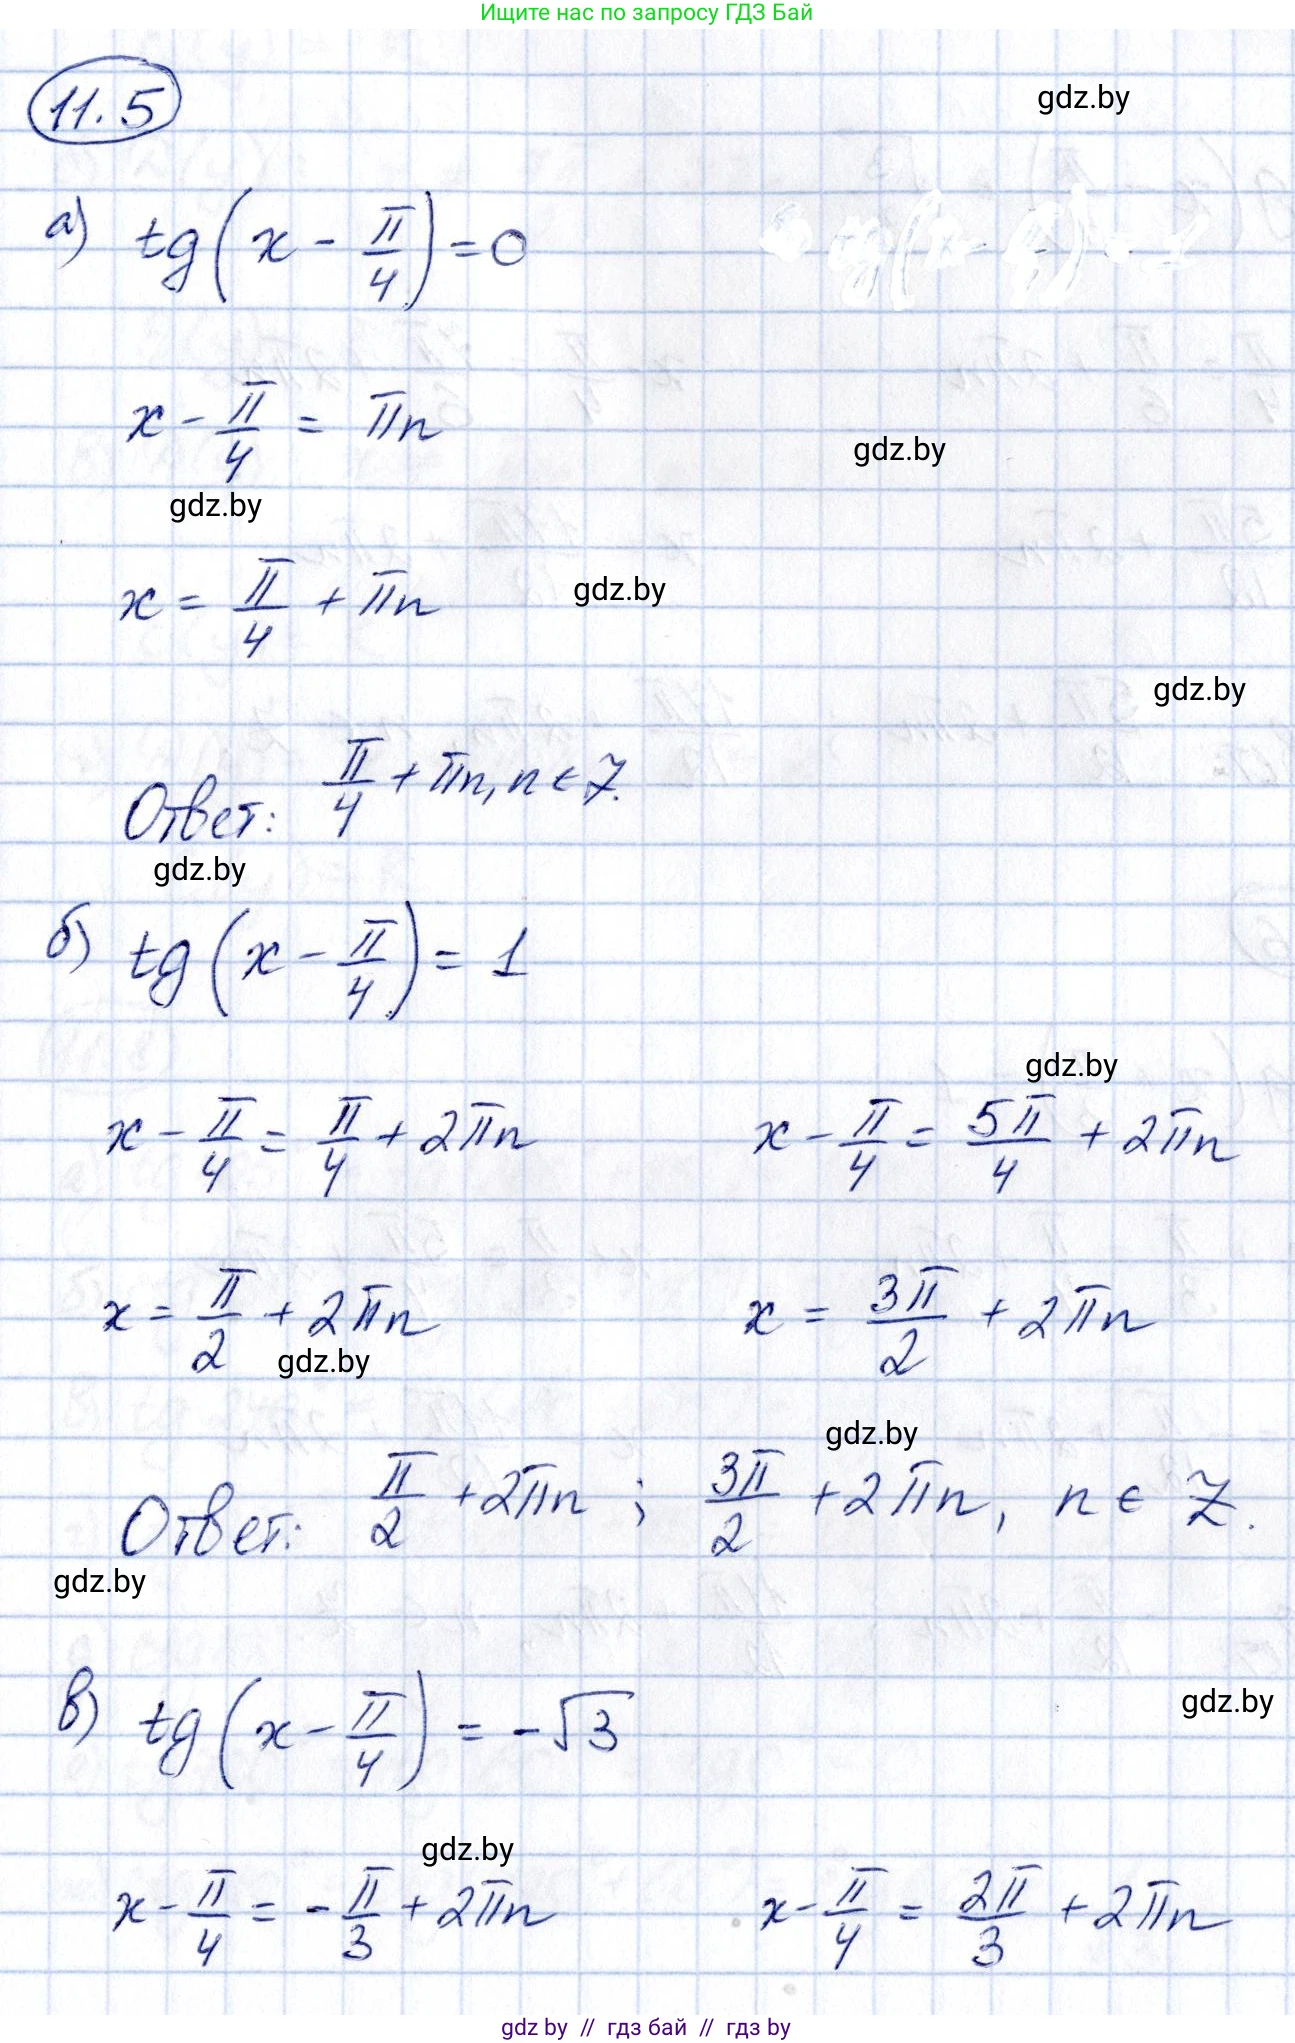 Ищите нас по запросу ГДЗ Бай
11.5
gdz.by
а) tg(x - π/4) = 0
x - π/4 = πn
gdz.by
gdz.by
x = π/4 + πn
gdz.by
gdz.by
Ответ: π/4 + πn, n ∈ Z.
gdz.by
б) tg(x - π/4) = 1
gdz.by
x - π/4 = π/4 + 2πn    x - π/4 = 5π/4 + 2πn
x = π/2 + 2πn    x = 3π/2 + 2πn
gdz.by
gdz.by
Ответ: π/2 + 2πn ; 3π/2 + 2πn, n ∈ Z.
gdz.by
в) tg(x - π/4) = -√3
gdz.by
gdz.by
x - π/4 = -π/3 + 2πn    x - π/4 = 2π/3 + 2πn
gdz.by // гдз бай // гдз by